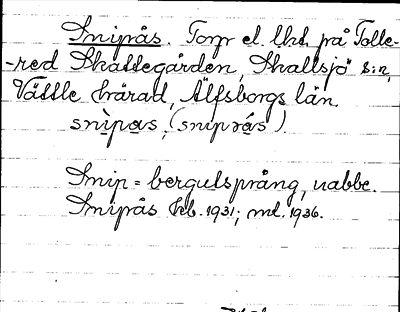 Snipås. Torp el. lht. på Tolle-
-red Skattegården, Skallsjö s:n,
Vättle härad, Älfsborgs län.
snipas, (snip rås).
Snip = bergutsprång, nabbe.
Snipås kb. 1931; ml. 1936.